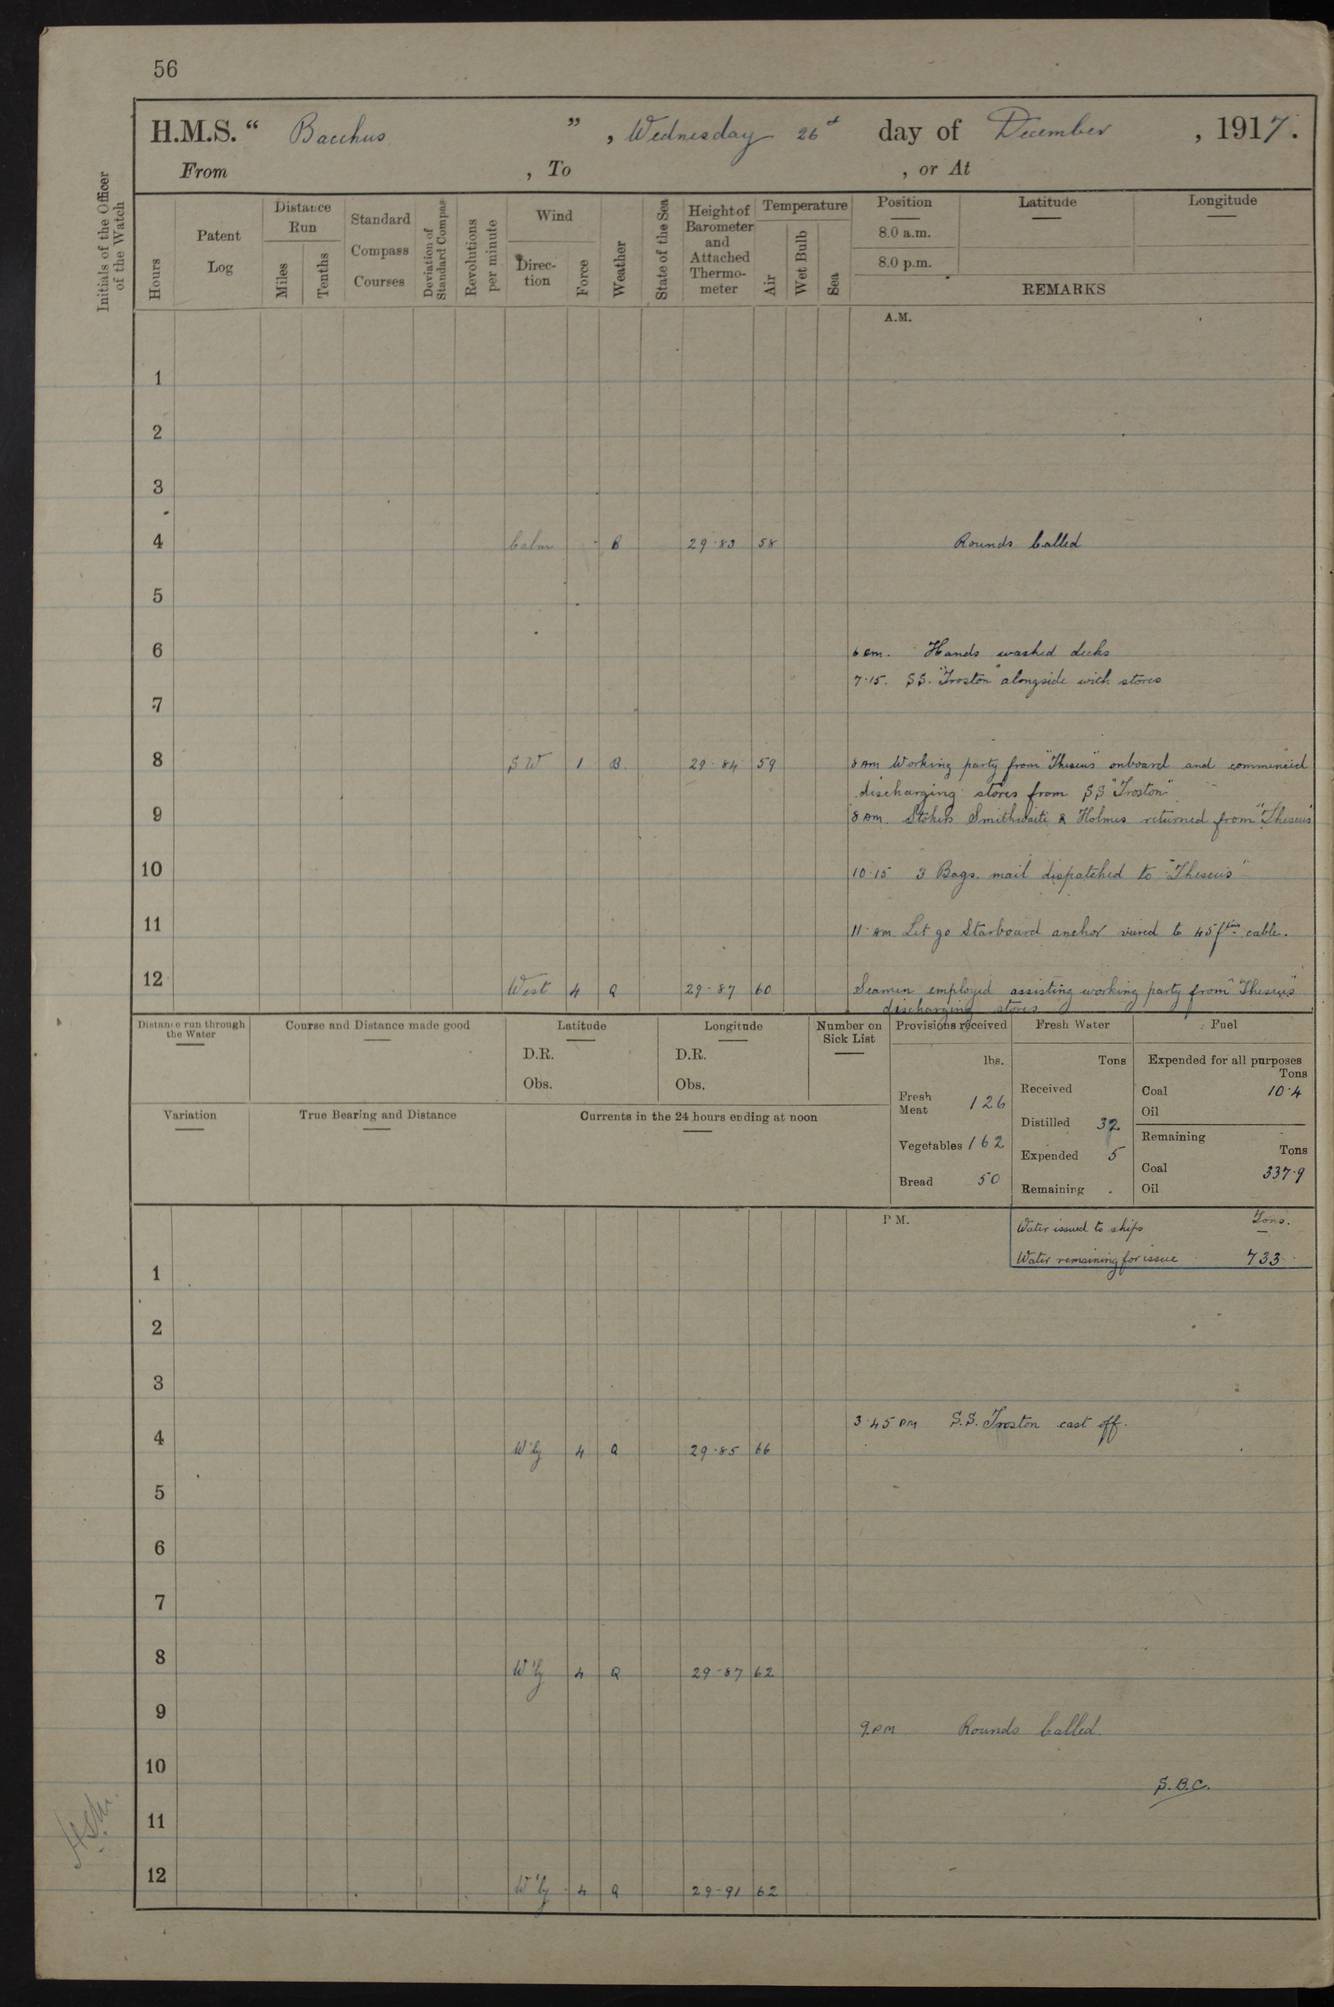 56
H.M.S. " Bacchus ", Wednesday 26th day of December, 1917.
From , To , or At
Initials of the Officer of the Watch
Hours
Patent Log
Distance Run
Miles
Tenths
Standard Compass Courses
Deviation of Standard Compass
Revolutions per minute
Wind
Direction
Force
Weather
State of the Sea
Height of Barometer and Attached Thermometer
Temperature
Air
Wet Bulb
Sea
Position
8.0 a.m.
8.0 p.m.
Latitude
Longitude
REMARKS
A.M.
1
2
3
4 Calm - B 29.83 58 Rounds Called
5
6 6 am. Hands washed decks
7.15. S.S. "Troston" alongside with stores
7
8 SW 1 B 29.84 59 8 am Working party from "Theseus" onboard and commenced
discharging stores from SS "Troston"
9 8 am. Stokers Smithwaite & Holmes returned from "Theseus"
10 10.15 3 Bags mail dispatched to "Theseus"
11 11. am Let go Starboard anchor veered to 45 fthms cable.
12 West 4 Q 29.87 60 Seamen employed assisting working party from "Theseus"
discharging stores
Distance run through the Water
Course and Distance made good
Latitude
D.R.
Obs.
Longitude
D.R.
Obs.
Number on Sick List
Provisions received
lbs.
Fresh Meat 126
Vegetables 162
Bread 50
Fresh Water
Tons
Received
Distilled 32
Expended 5
Remaining .
Fuel
Expended for all purposes
Tons
Coal 10.4
Oil
Remaining
Tons
Coal 337.9
Oil
Variation
True Bearing and Distance
Currents in the 24 hours ending at noon
P.M.
Water issued to ships Tons.
Water remaining for issue 733
1
2
3
3.45 PM S.S. Troston cast off.
4 W'ly 4 Q 29.85 66
5
6
7
8 W'ly 4 Q 29.87 62
9 9.PM Rounds Called.
10
S.B.C.
11
12 W'ly 4 Q 29.91 62